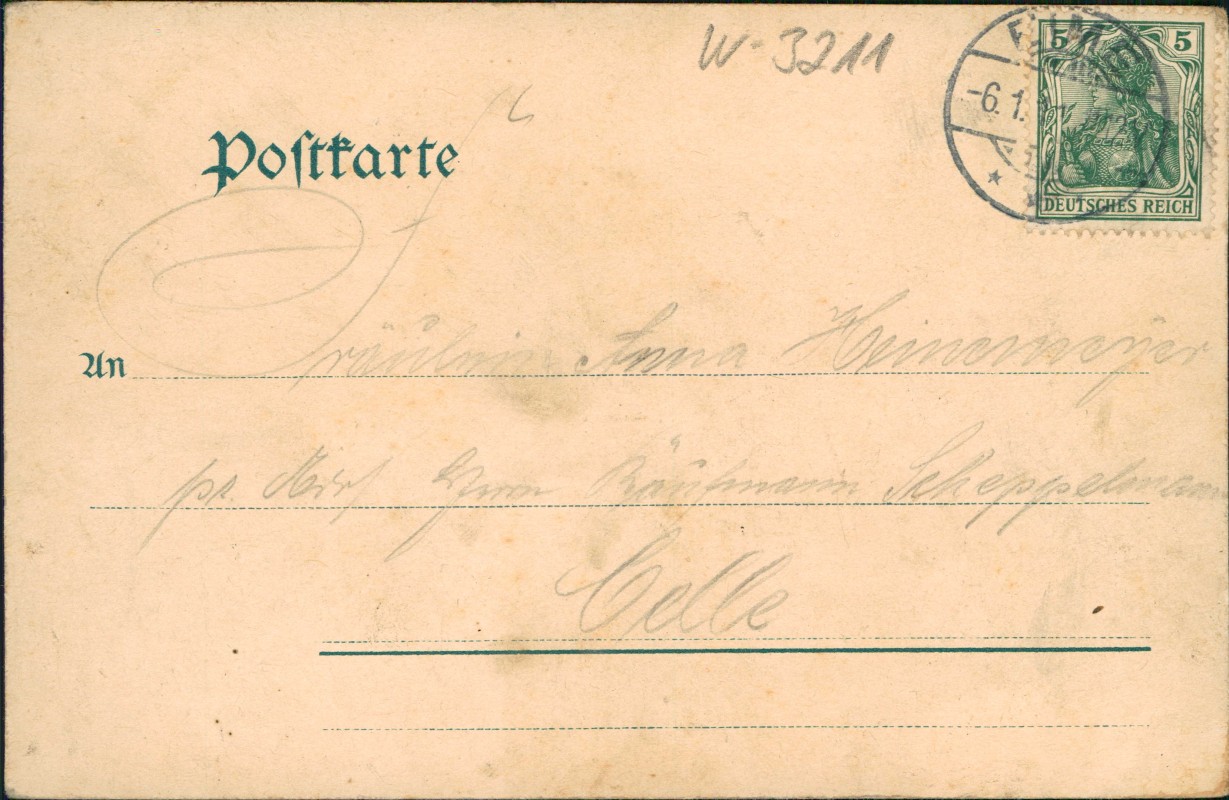 W-3211
5 5
-6.1.
DEUTSCHES REICH
Postkarte
An Fräulein Anna Heinemeyer
pr. Adr. Kaufmann Scheppelmann
Celle